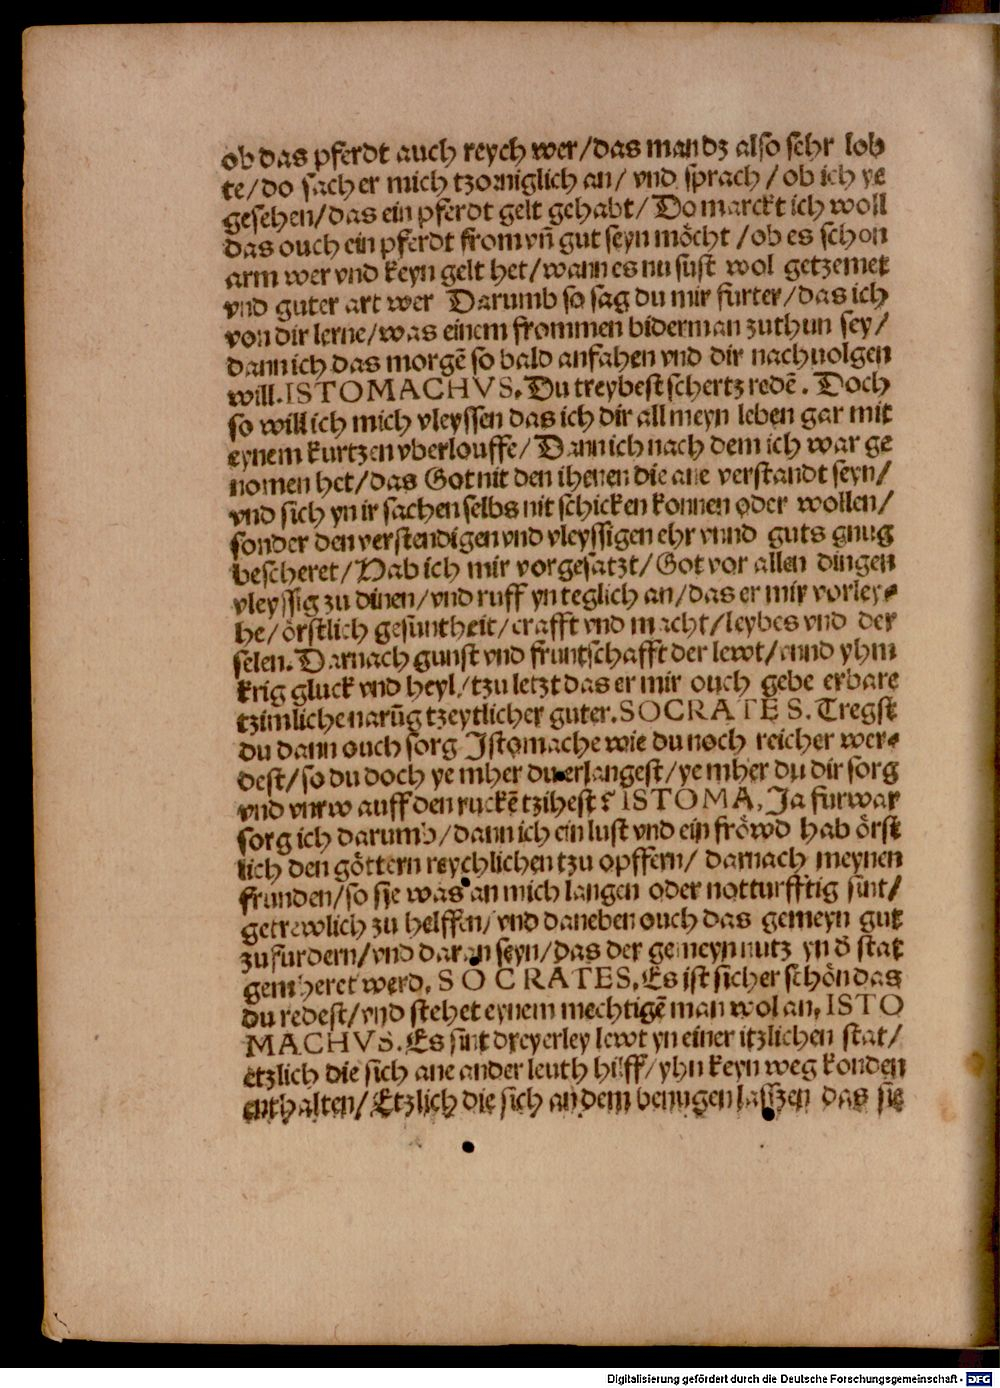 ob das pferdt auch reych wer/das man dz also sehr lob
te/do sach er mich tzorniglich an/ vnd sprach/ob ich ye
gesehen/das ein pferdt gelt gehabt/Do marckt ich woll
das ouch ein pferdt from vn̄ gut seyn möcht/ob es schon
arm wer vnd keyn gelt het/wann es nu sust wol getzemet
vnd guter art wer Darumb so sag du mir furter/das ich
von dir lerne/was einem frommen biderman zuthun sey/
dann ich das morgē so bald anfahen vnd dir nachuolgen
will. ISTOMACHVS. Du treybest schertz redē. Doch
so will ich mich vleyssen das ich dir all meyn leben gar mit
eynem kurtzen vberlouffe/Dann ich nach dem ich war ge
nomen het/das Got nit den ihenen die ane verstandt seyn/
vnd sich yn ir sachen selbs nit schicken konnen oder wollen/
sonder den verstendigen vnd vleyssigen ehr vnnd guts gnug
bescheret/Hab ich mir vorgesatzt/Got vor allen dingen
vleyssig zu dinen/vnd ruff yn teglich an/das er mir vorley⸗
he/örstlich gesuntheit/crafft vnd macht/leybes vnd der
selen. Darnach gunst vnd fruntschafft der lewt/vnnd yhm
krig gluck vnd heyl/tzu letzt das er mir ouch gebe erbare
tzimliche narūg tzeytlicher guter. SOCRATES. Tregst
du dann ouch sorg Istomache wie du noch reicher wer⸗
dest/so du doch ye mher du erlangest/ye mher du dir sorg
vnd vnrw auff den ruckē tzihest? ISTOMA, Ja furwar
sorg ich darumb/dann ich ein lust vnd ein fröwd hab örst
lich den göttern reychlichen tzu opffern/ darnach meynen
frunden/so sie was an mich langen oder notturfftig sint/
getrewlich zu helffen/vnd daneben ouch das gemeyn gut
zu furdern/vnd daran seyn/das der gemeyn nutz yn d̄ stat
gemheret werd. SOCRATES. Es ist sicher schön das
du redest/vnd stehet eynem mechtigē man wol an. ISTO
MACHVS. Es sint dreyerley lewt yn einer itzlichen stat/
etzlich die sich ane ander leuth hilff/yhn keyn weg konden
enthalten/Etzlich die sich an dem benugen lasszen das sie
Digitalisierung gefördert durch die Deutsche Forschungsgemeinschaft - DFG